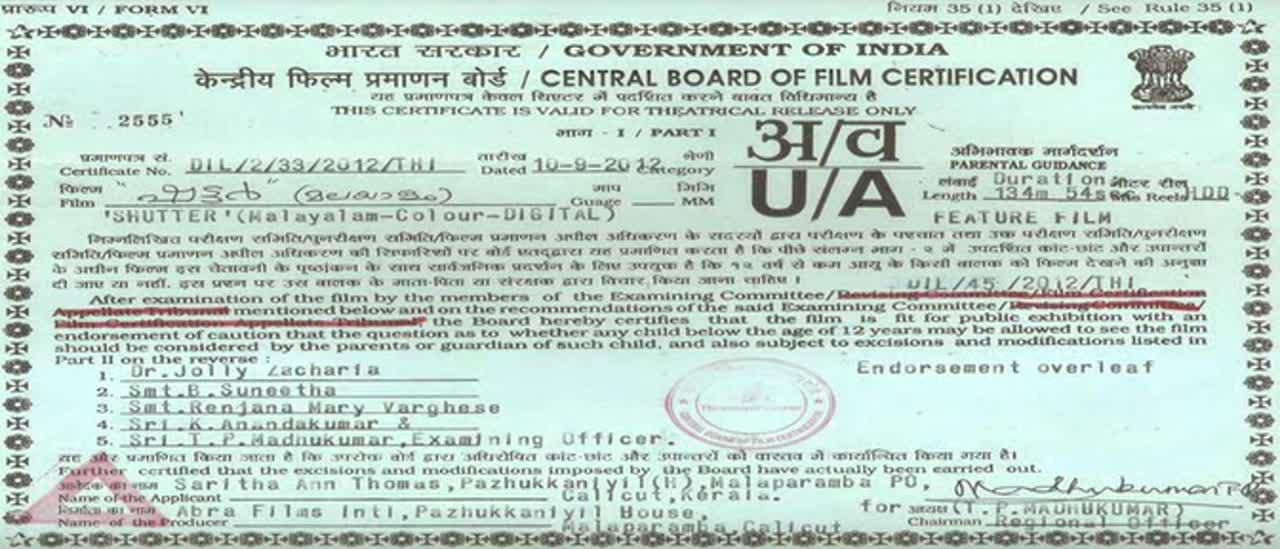 प्रारूप VI / FORM VI
नियम 35 (1) देखिए / See Rule 35 (1)
भारत सरकार / GOVERNMENT OF INDIA
केन्द्रीय फिल्म प्रमाणन बोर्ड / CENTRAL BOARD OF FILM CERTIFICATION
यह प्रमाणपत्र केवल थिएटर में प्रदर्शित करने बाबत विधिमान्य है
THIS CERTIFICATE IS VALID FOR THEATRICAL RELEASE ONLY
№ 2555
भाग - I / PART I
अ/व
U/A
प्रमाणपत्र सं. तारीख श्रेणी अभिभावक मार्गदर्शन
Certificate No. DIL/2/33/2012/THI Dated 10-9-2012 Category PARENTAL GUIDANCE
फिल्म माप मिमि लंबाई Duration मीटर रील
Film "ഷട്ടർ" (മലയാളം) Guage MM Length 134m 54sec Reels HDD
'SHUTTER'(Malayalam-Colour-DIGITAL) FEATURE FILM
निम्नलिखित परीक्षण समिति/पुनरीक्षण समिति/फिल्म प्रमाणन अपील अधिकरण के सदस्यों द्वारा परीक्षण के पश्चात तथा उक्त परीक्षण समिति/पुनरीक्षण
समिति/फिल्म प्रमाणन अपील अधिकरण की सिफारिशों पर बोर्ड एतद्द्वारा यह प्रमाणित करता है कि पीछे संलग्न भाग - २ में उपदर्शित कांट-छांट और उपान्तरों
के अधीन फिल्म इस चेतावनी के पृष्ठांकन के साथ सार्वजनिक प्रदर्शन के लिए उपयुक्त है कि १२ वर्ष से कम आयु के किसी बालक को फिल्म देखने की अनुज्ञा
दी जाए या नहीं. इस प्रश्न पर उस बालक के माता-पिता या संरक्षक द्वारा विचार किया जाना चाहिए । DIL/45 /2012/THI
After examination of the film by the members of the Examining Committee/Revising Committee/Film Certification
Appellate Tribunal mentioned below and on the recommendations of the said Examining Committee/Revising Committee/
Film Certification Appellate Tribunal, the Board hereby certifies that the film is fit for public exhibition with an
endorsement of caution that the question as to whether any child below the age of 12 years may be allowed to see the film
should be considered by the parents or guardian of such child, and also subject to excisions and modifications listed in
Part II on the reverse :
1. Dr.Jolly Zacharia Endorsement overleaf
2. Smt.B.Suneetha
3. Smt.Renjana Mary Varghese
4. Sri.K.Anandakumar &
5. Sri.T.P.Madhukumar,Examining Officer.
यह और प्रमाणित किया जाता है कि उपरोक्त बोर्ड द्वारा अधिरोपित कांट-छांट और उपान्तरों को वास्तव में कार्यान्वित किया गया है।
Further certified that the excisions and modifications imposed by the Board have actually been carried out.
आवेदक का नाम Saritha Ann Thomas,Pazhukkaniyil(H),Malaparamba PO,
Name of the Applicant Calicut,Kerala.
निर्माता का नाम Abra Films Intl,Pazhukkaniyil House, for अध्यक्ष (T.P.MADHUKUMAR)
Name of the Producer Malaparamba,Calicut Chairman Regional Officer